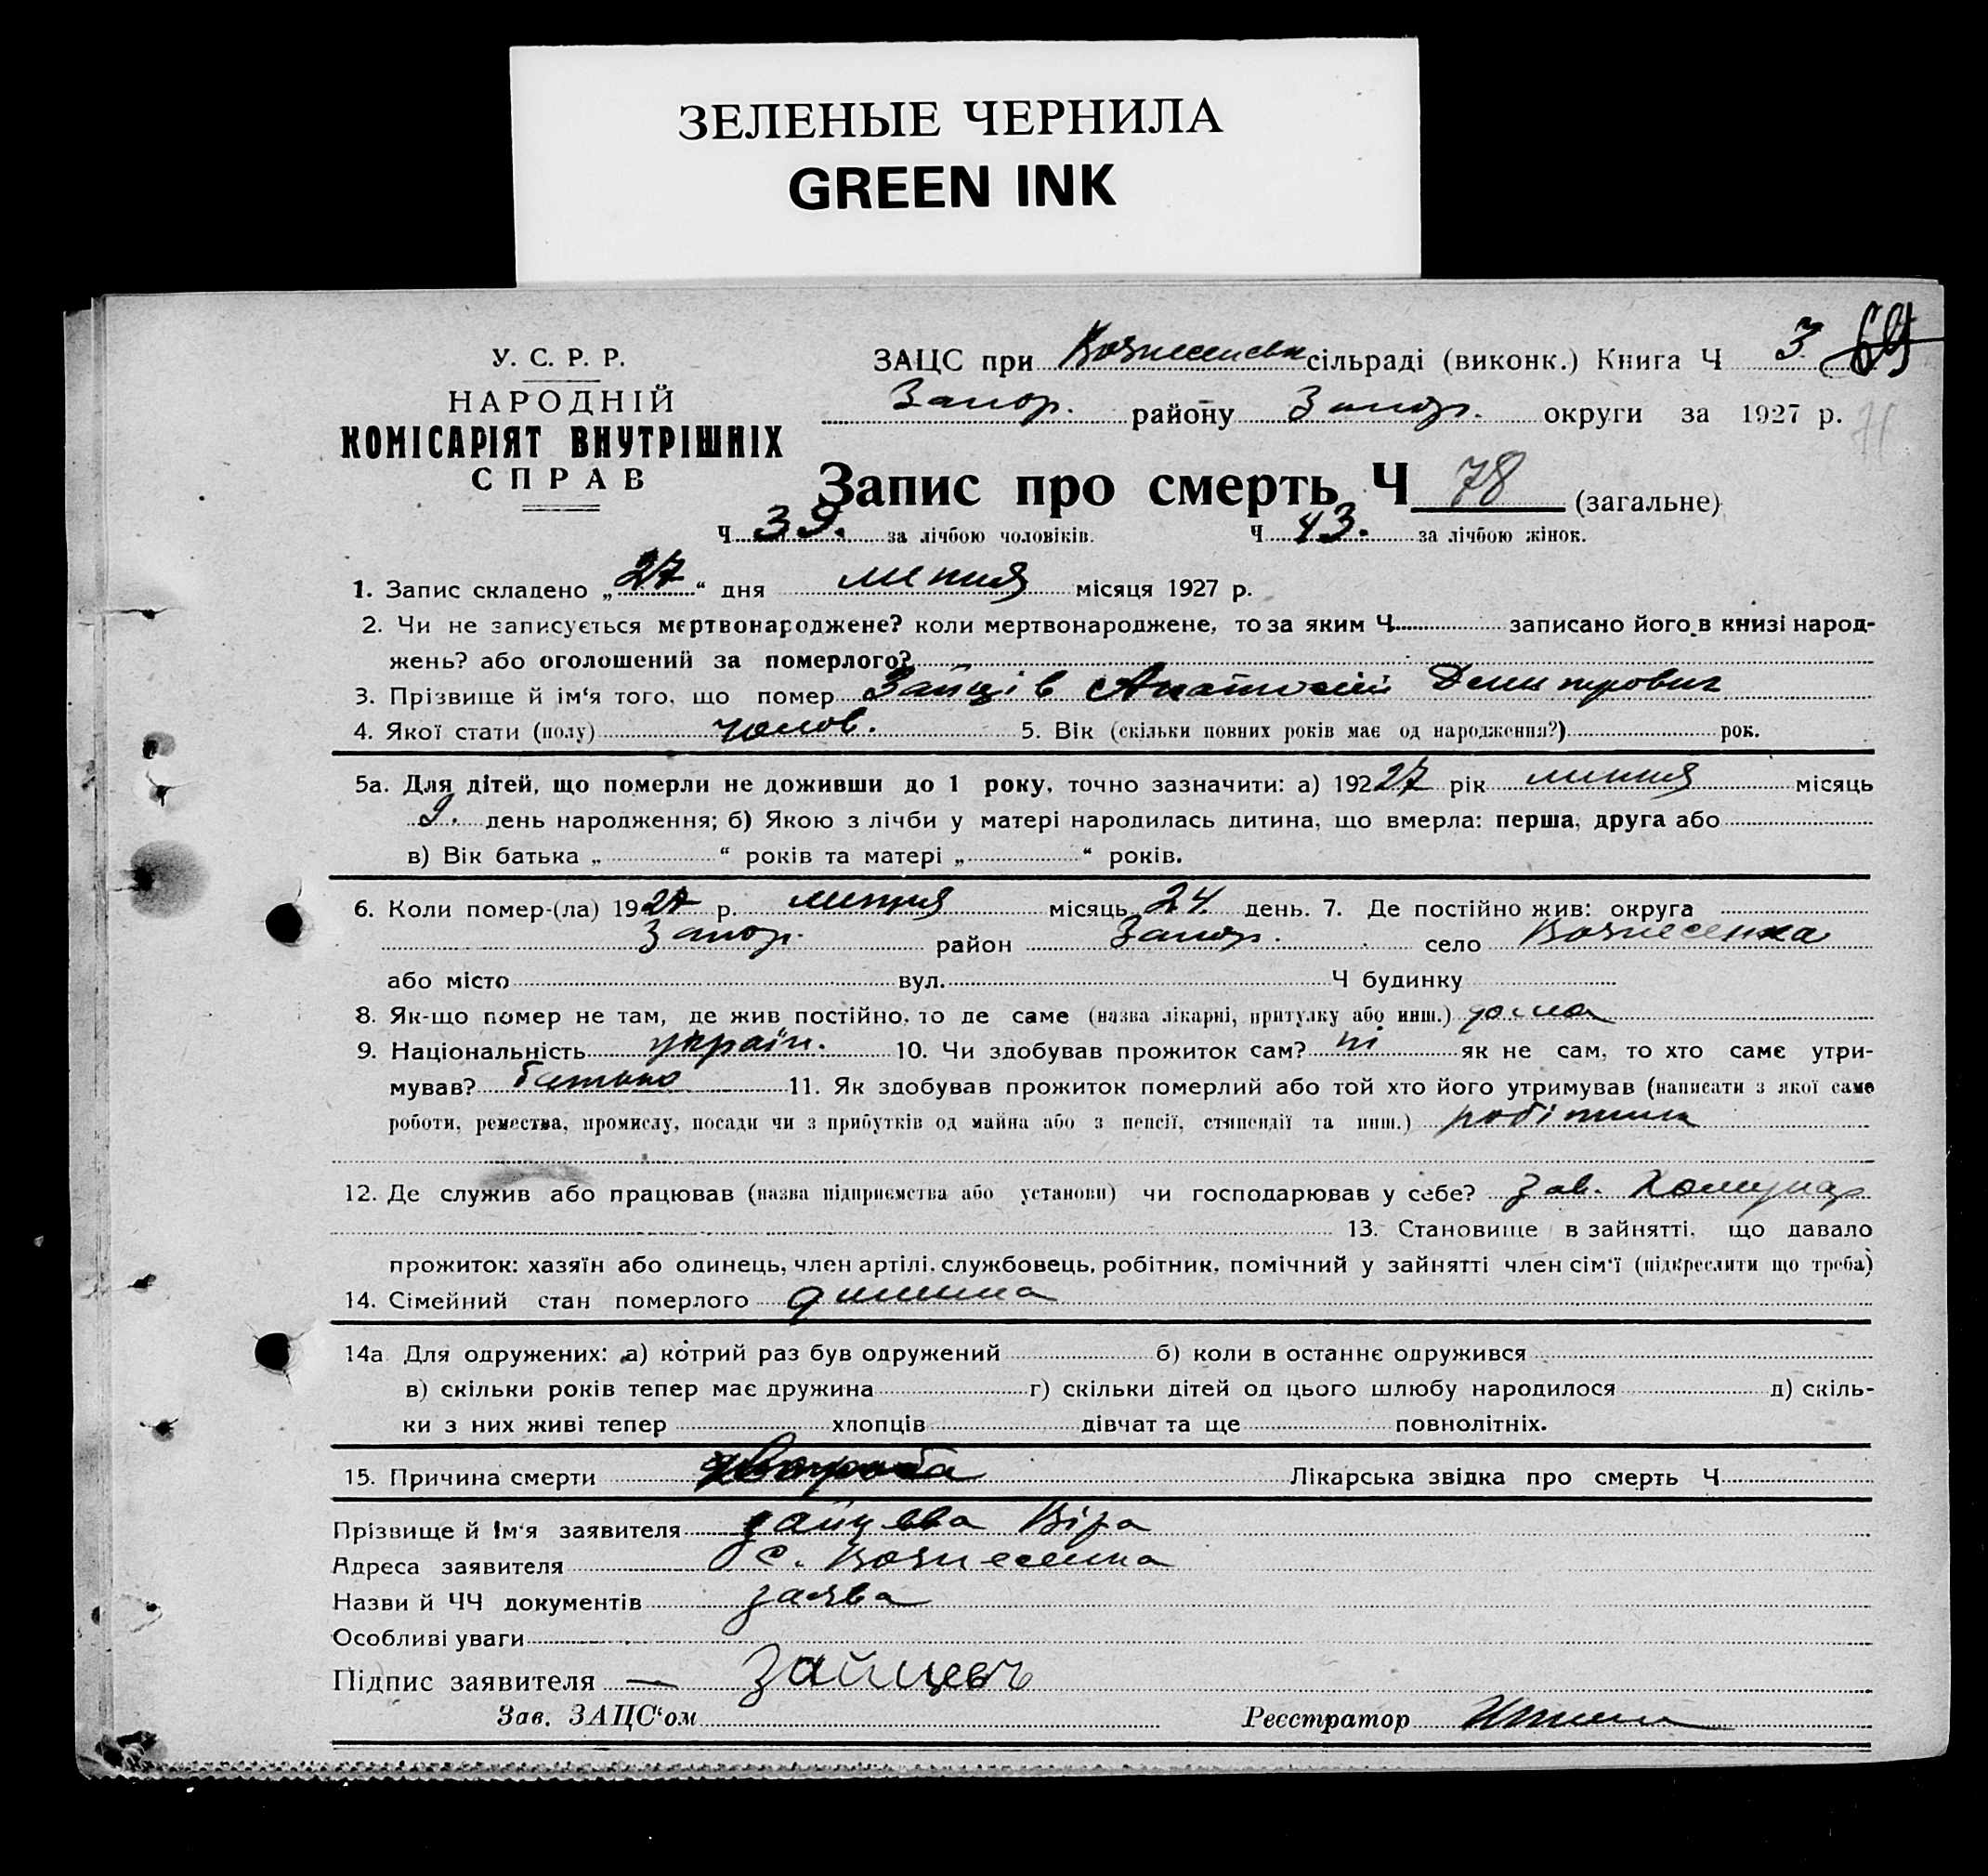 ЗЕЛЕНЫЕ ЧЕРНИЛА
GREEN INK
У. С. Р. Р.
НАРОДНІЙ
КОМІСАРІЯТ ВНУТРІШНІХ
СПРАВ
ЗАЦС при Вознесенськ сільраді (виконк.) Книга Ч 3. 69
Запор. району Запор. округи за 1927 р. 71
Запис про смерть Ч 78 (загальне)
Ч 39. за лічбою чоловіків. Ч 43. за лічбою жінок.
1. Запис складено „27“ дня липня місяця 1927 р.
2. Чи не записується мертвонароджене? коли мертвонароджене, то за яким Ч. записано його в книзі народ-
жень? або оголошений за померлого?
3. Прізвище й ім'я того, що помер Зайців Анатолій Дмитрович
4. Якої стати (полу) чолов. 5. Вік (скільки повних років має од народження?) рок.
5а. Для дітей, що померли не доживши до 1 року, точно зазначити: а) 19227 рік липня місяць
9. день народження; б) Якою з лічби у матері народилась дитина, що вмерла: перша, друга або
в) Вік батька „ “ років та матері „ “ років.
6. Коли помер-(ла) 1927 р. липня місяць 24. день. 7. Де постійно жив: округа
Запор. район Запор. село Вознесенка
або місто вул. Ч будинку
8. Як-що помер не там, де жив постійно, то де саме (назва лікарні, притулку або инш.) дома
9. Національність україн. 10. Чи здобував прожиток сам? ні як не сам, то хто саме утри-
мував? батько 11. Як здобував прожиток померлий або той хто його утримував (написати з якої саме
роботи, ремества, промислу, посади чи з прибутків од майна або з пенсії, стипендії та инш.) робітник
12. Де служив або працював (назва підприємства або установи) чи господарював у себе? зав. Комунар
13. Становище в зайнятті, що давало
прожиток: хазяїн або одинець, член артілі, службовець, робітник, помічний у зайнятті член сім'ї (підкреслити що треба)
14. Сімейний стан померлого дитина
14а Для одружених: а) котрий раз був одружений б) коли в останнє одружився
в) скільки років тепер має дружина г) скільки дітей од цього шлюбу народилося д) скіль-
ки з них живі тепер хлопців дівчат та ще повнолітніх.
15. Причина смерти хвороба Лікарська звідка про смерть Ч
Прізвище й ім'я заявителя Зайцева Віра
Адреса заявителя с. Вознесенка
Назви й ЧЧ документів заява
Особливі уваги
Підпис заявителя — Зайцевъ
Зав. ЗАЦС'ом Реєстратор